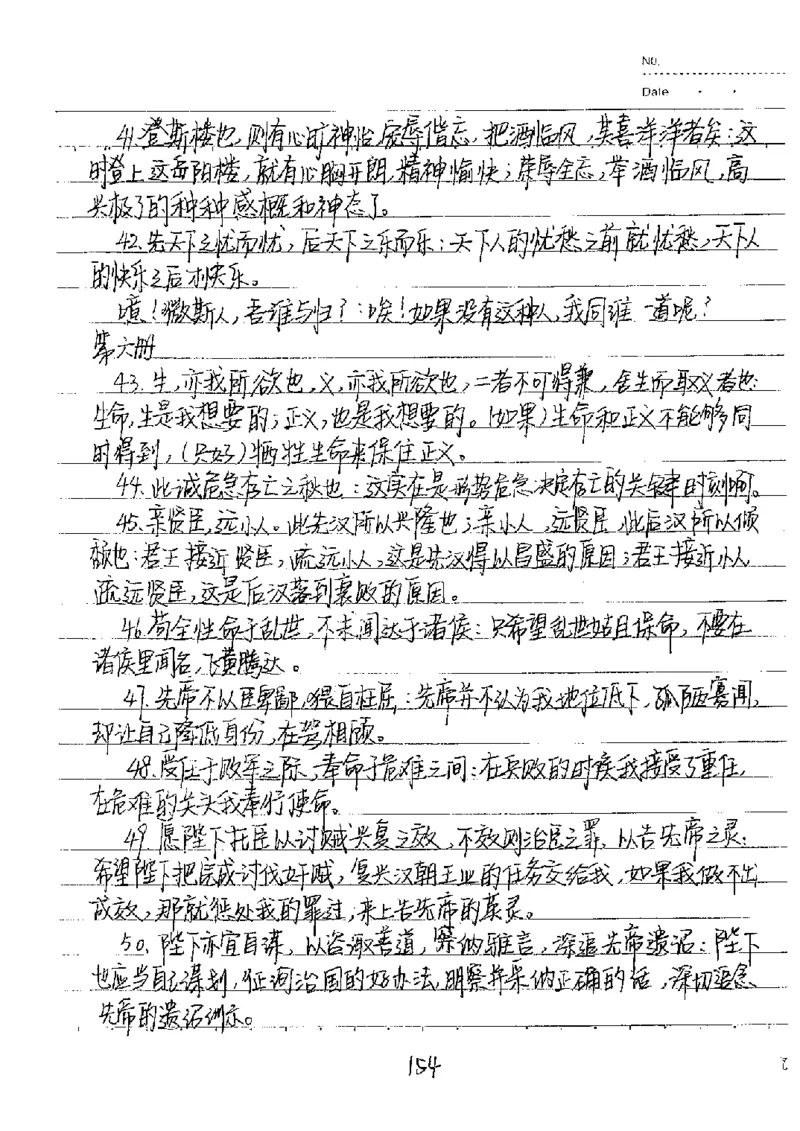 No.
Date
41.登斯楼也,则有心旷神怡,宠辱偕忘,把酒临风,其喜洋洋者矣:这
时登上这岳阳楼,就有心胸开朗,精神愉快;荣辱全忘,举酒临风,高
兴极了的种种感概和神态了。
42.先天下之忧而忧,后天下之乐而乐:天下人的忧愁之前就忧愁,天下人
的快乐之后才快乐。
噫!微斯人,吾谁与归?:唉!如果没有这种人,我同谁一道呢?
第六册
43.生,亦我所欲也,义,亦我所欲也,二者不可得兼,舍生而取义者也:
生命,生是我想要的;正义,也是我想要的。(如果)生命和正义不能够同
时得到,(只好)牺牲生命来保住正义。
44.此诚危急存亡之秋也:这实在是形势危急决定存亡的关键时刻啊。
45.亲贤臣,远小人。此先汉所以兴隆也;亲小人,远贤臣,此后汉所以倾
颓也:君王接近贤臣,疏远小人,这是先汉得以昌盛的原因;君王接近小人
疏远贤臣,这是后汉落到衰败的原因。
46.苟全性命于乱世,不求闻达于诸侯:只希望乱世姑且保命,不要在
诸侯里闻名,飞黄腾达。
47.先帝不以臣卑鄙,猥自枉屈:先帝并不认为我地位低下,孤陋寡闻,
却让自己降低身份,在驾相顾。
48.受任于败军之际,奉命于危难之间:在兵败的时候我接受了重任,
在危难的关头我奉行使命。
49.愿陛下托臣以讨贼兴复之效,不效则治臣之罪,以告先帝之灵:
希望陛下把完成讨伐奸贼,复兴汉朝王业的任务交给我,如果我做不出
成效,那就惩处我的罪过,来上告先帝的英灵。
50.陛下亦宜自谋,以咨诹善道,察纳雅言,深追先帝遗诏:陛下
也应当自己谋划,征询治国的好办法,明察并采纳正确的话,深切追念
先帝的遗诏训示。
154